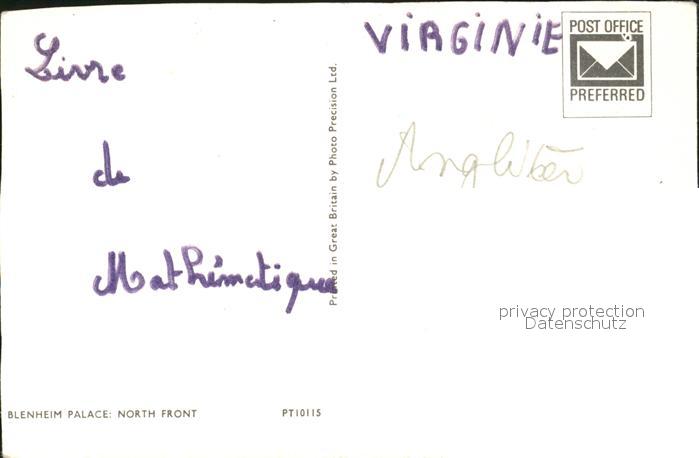 Livre
de
Mathématique
BLENHEIM PALACE: NORTH FRONT
PT10115
Printed in Great Britain by Photo Precision Ltd.
VIRGINIE
POST OFFICE
PREFERRED
privacy protection
Datenschutz